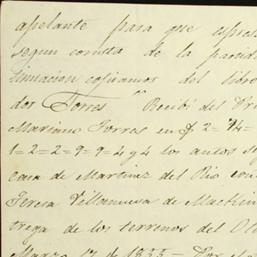 apelante para que espres
segun consta de la partida
tinuacion copiamos del libro
dos Torres " Recibi del Dr
Mariano Torres en f. 2=74=
1=2=2=9=9=4 y 4 los autos se
casa de Martinez del Rio con
Teresa Villanueva de Mackin
trega de los terrenos del Ol
Marzo 17 de 1855 = Por el